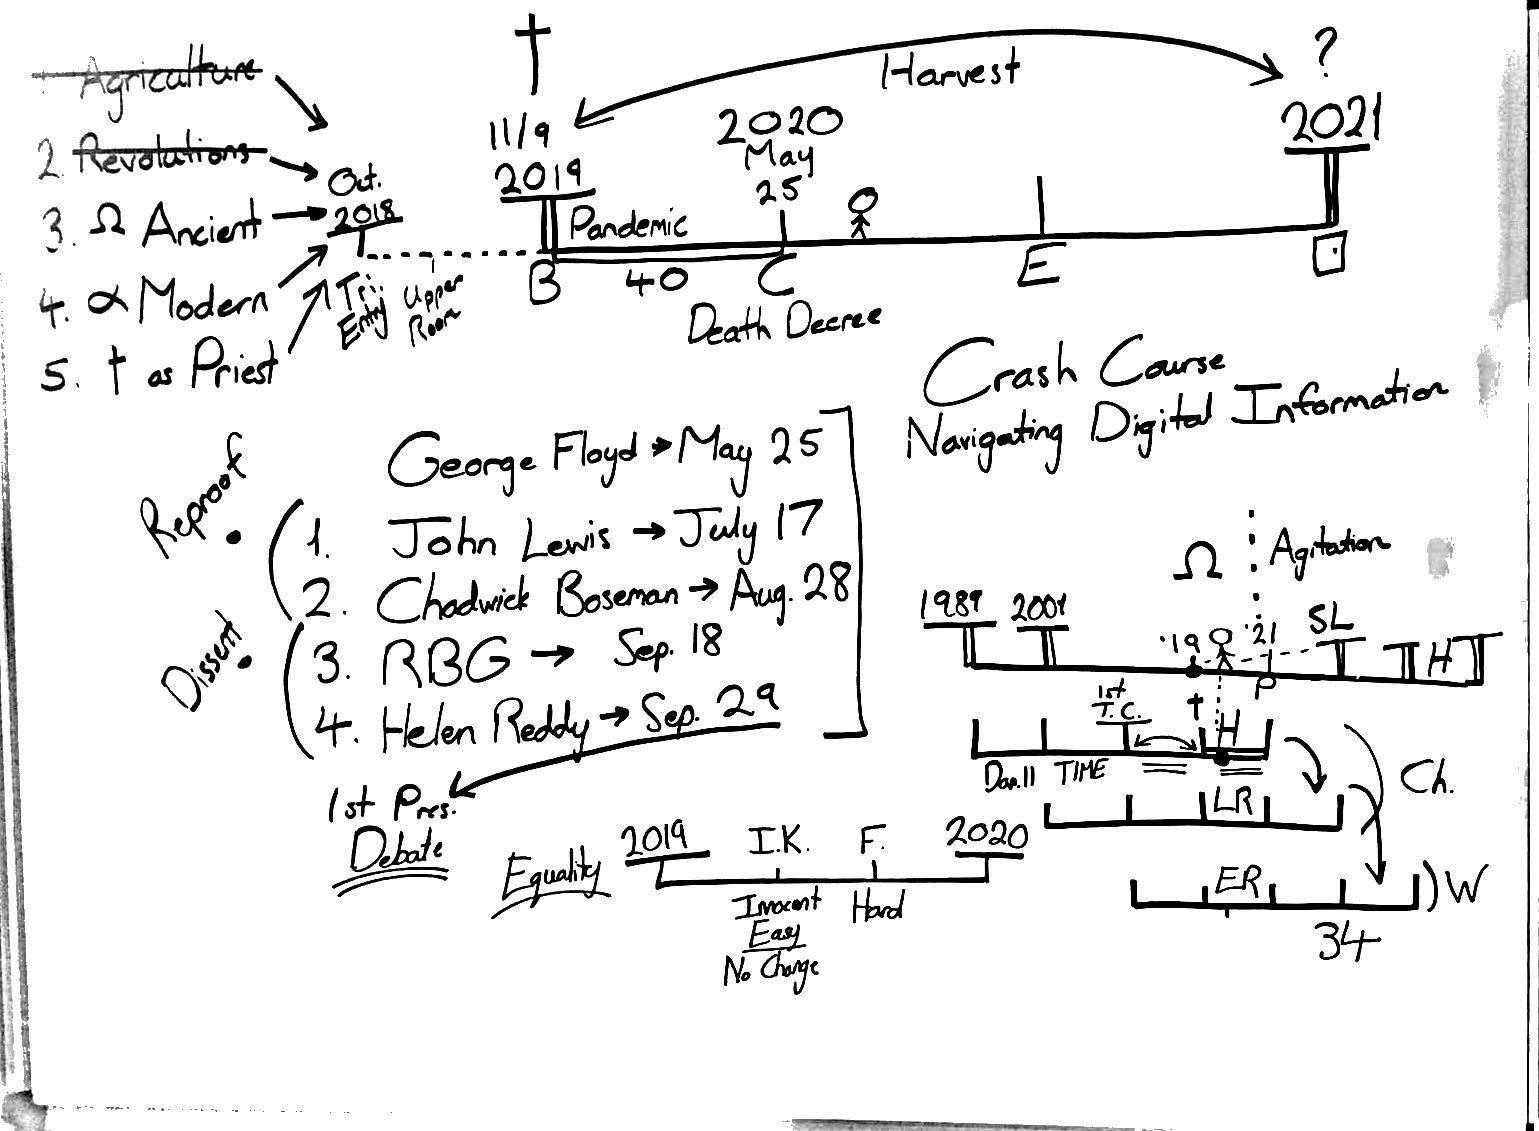 Agriculture
2. Revolutions
3. Ω Ancient
4. α Modern
5. † as Priest
Oct.
2018
Tri.
Entry
Upper
Room
†
11/9
2019
Harvest
?
2021
2020
May
25
Pandemic
B
40
C
E
Death Decree
Crash Course
Navigating Digital Information
Reproof
Dissent
George Floyd → May 25
1. John Lewis → July 17
2. Chadwick Boseman → Aug. 28
3. RBG → Sep. 18
4. Helen Reddy → Sep. 29
1st Pres.
Debate
Equality
2019
I.K.
F.
2020
Innocent
Easy
No Change
Hard
Ω
Agitation
1989
2001
'19
21
SL
H
P
1st
T.C.
†
H
Dan.11
TIME
LR
Ch.
ER
W
34